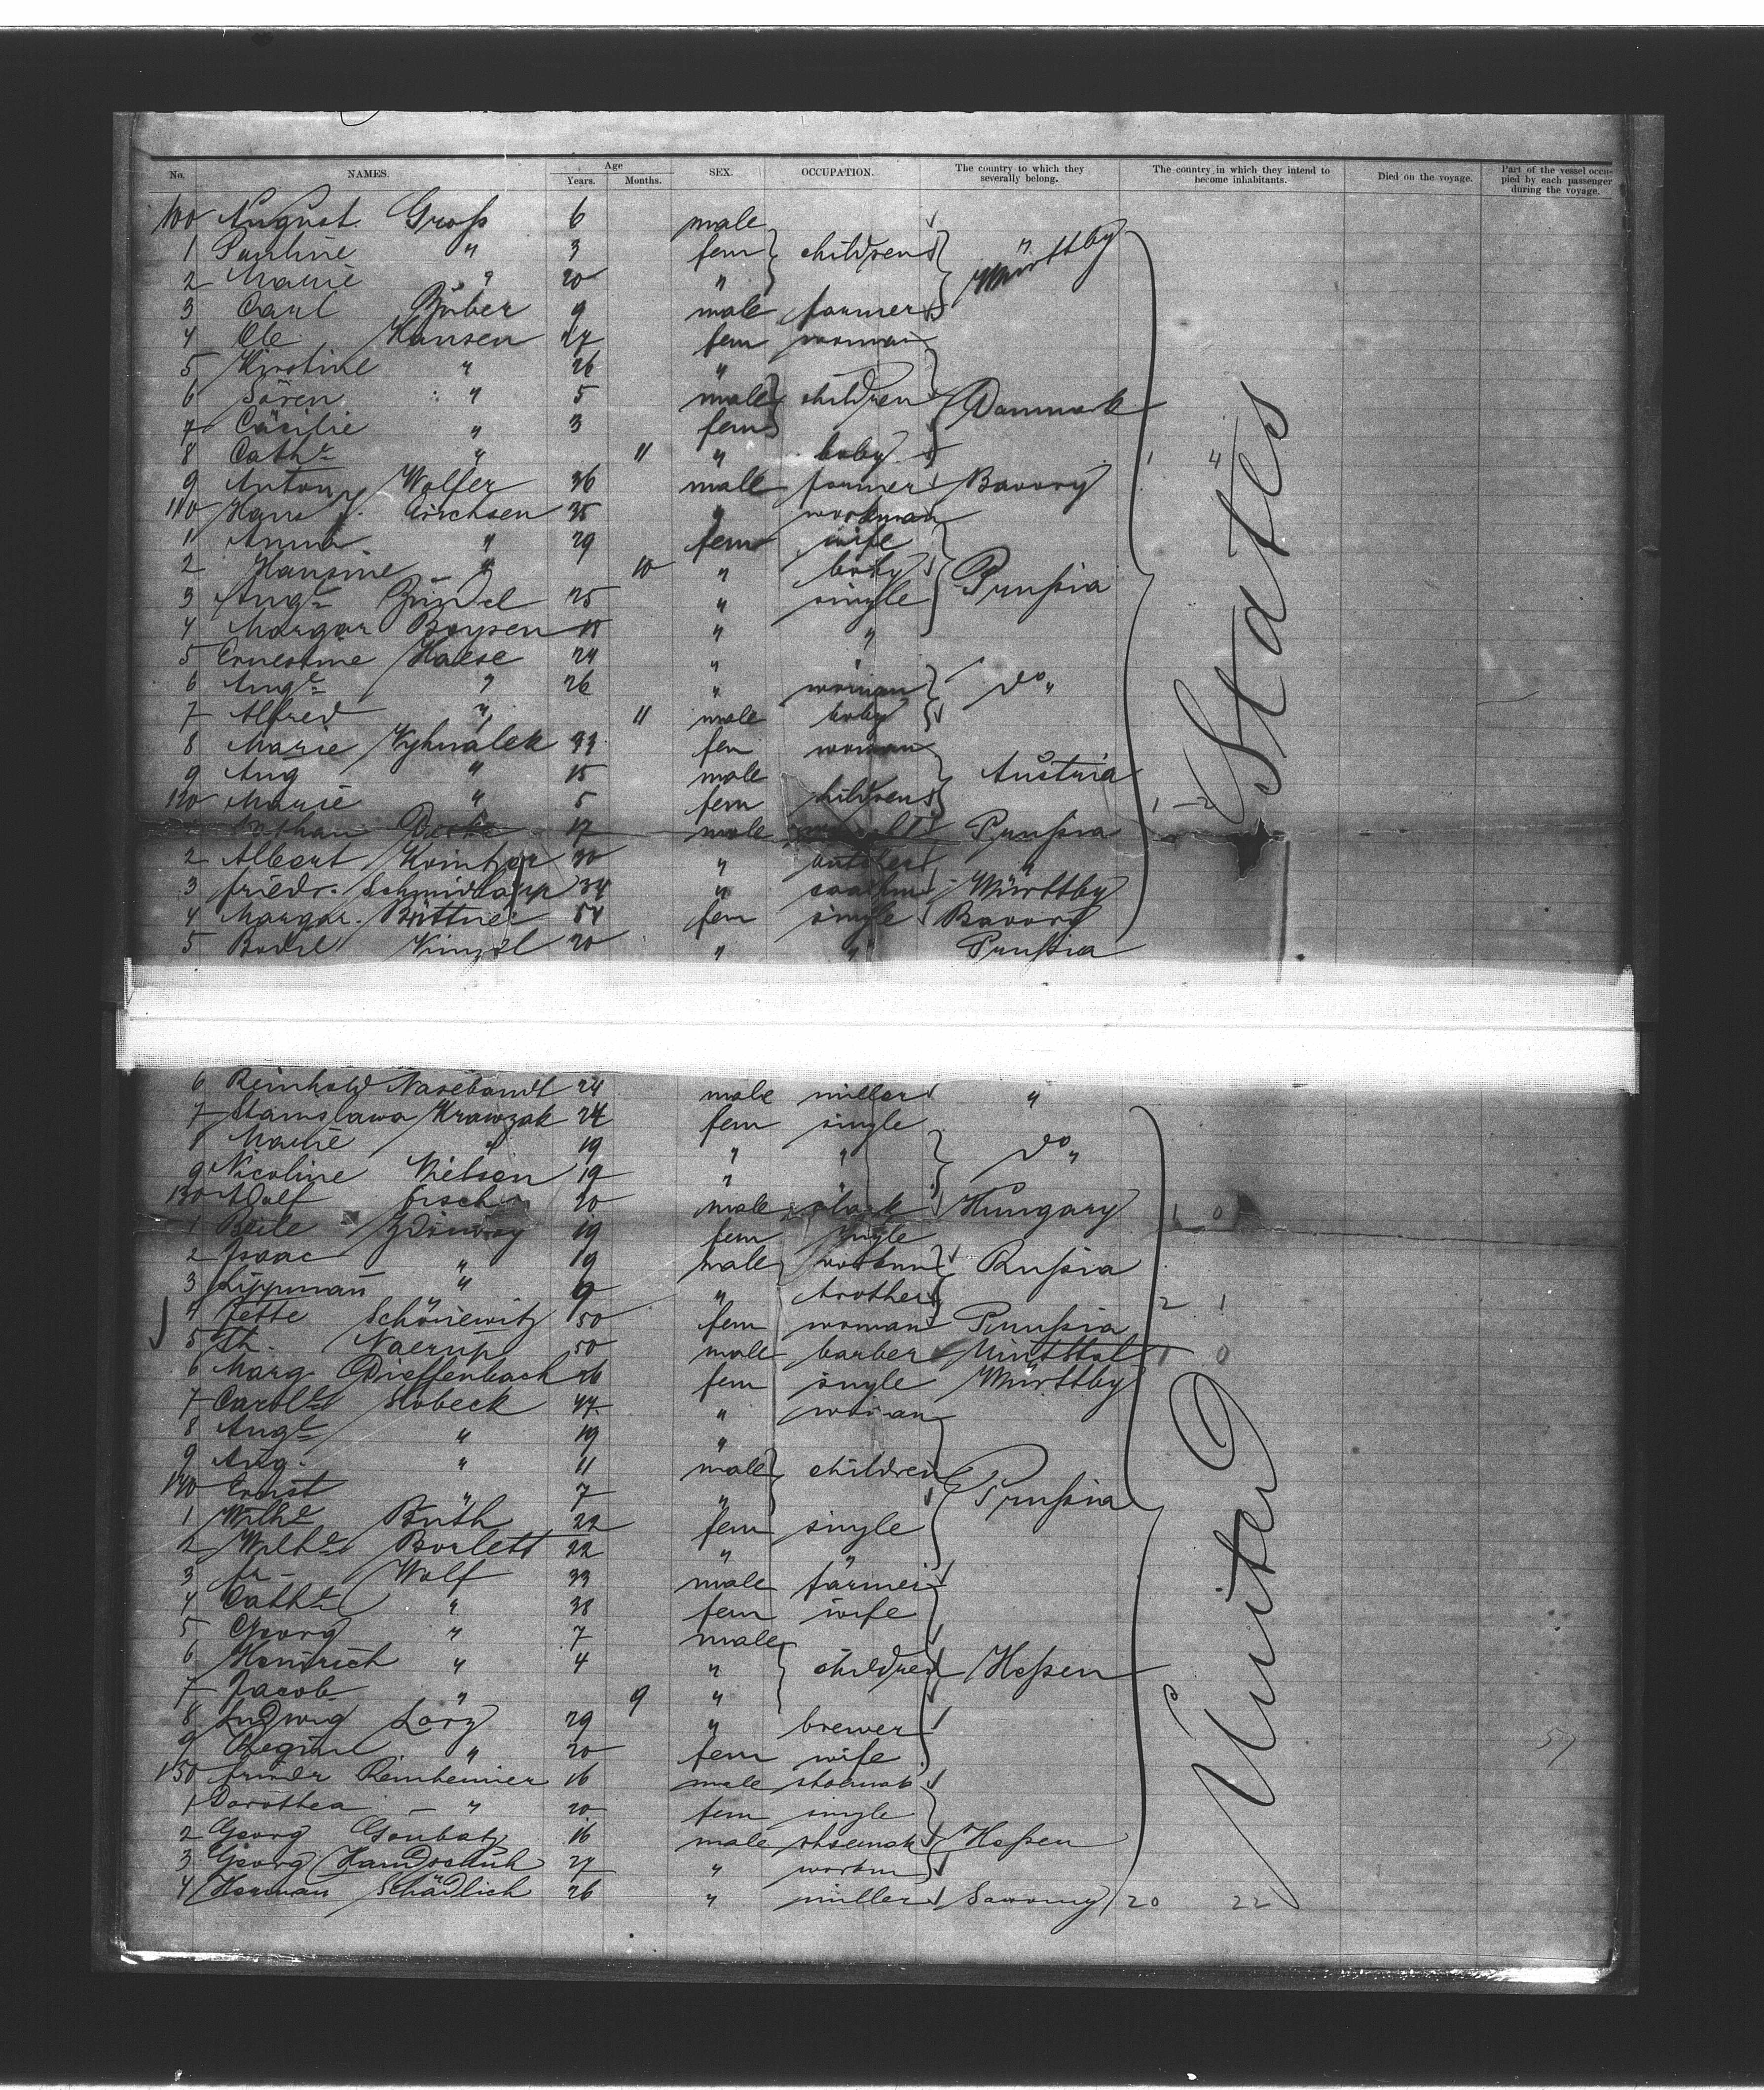 No. NAMES. Age Years. Months. SEX. OCCUPATION. The country to which they severally belong. The country in which they intend to become inhabitants. Died on the voyage. Part of the vessel occupied by each passenger during the voyage.
100 August Groß 6 male
1 Pauline " 3 fem children Württby
2 Marie " 20 "
3 Carl 9 male farmer
4 Ole Hansen 27 fem woman
5 Kirstine " 26 "
6 Sören " 5 male children Danmark
7 Cäcilie " 3 fem
8 Cathe " 11 " baby
9 Anton Wolfer 36 male farmer Bavory
110 Hans J. 35 " workman
1 Anna " 29 fem wife
2 Hansine " 10 " baby Prußia
3 Auge 25 " single
4 Margar Boysen 18 " "
5 Ernestine Haese 24 " "
6 Auge " 26 " woman do "
7 Alfred " 11 male baby
8 Marie Vyhnalek 33 fem woman
9 Aug " 15 male Austria
120 Marie " 5 fem children
Nathan 17 male Prußia
2 Albert 30 " butcher "
3 friedr. Schmidlapp 34 " Württby
4 Margar. Büttner 54 fem single Bavory
5 Bodil 20 " " Prußia
6 Reinhold Nasebandt 24 male miller "
7 Stanislawa Krawzak 24 fem single
8 Marie " 19 " " do "
9 Nicoline Nielsen 19 "
130 Adolf fisch 20 male clark Hungary
1 Beile 19 fem single
2 Isaac " 19 male workm Rußia
3 Lippmann " 9 " brother
4 Jette Schöniewitz 50 fem woman Prußia
5 Th. Naerup 50 male barber
6 Marg Dieffenbach 26 fem single Württby
7 Carole Slobeck 47 " woman
8 Auge " 19 "
9 Aug. " 11 male children
140 Ernst " 7 " Prußia
1 Wilhe Buth 22 fem single
2 Wilhe Borlett 22 " "
3 fr Wolf 33 male farmer
4 Cathe " 38 fem wife
5 Georg " 7 male
6 Heinrich " 4 " children Heßen
7 Jacob " 9 "
8 Ludwig Lorz 29 " brewer
9 Regine " 20 fem wife
150 friedr Reinheimer 16 male shoemak
1 Dorothea " 20 fem single
2 Georg Goubatz 16 male shoemak Heßen
3 Georg Handschuh 27 " workm
4 Herman Schädlich 26 " miller 20 22
United States